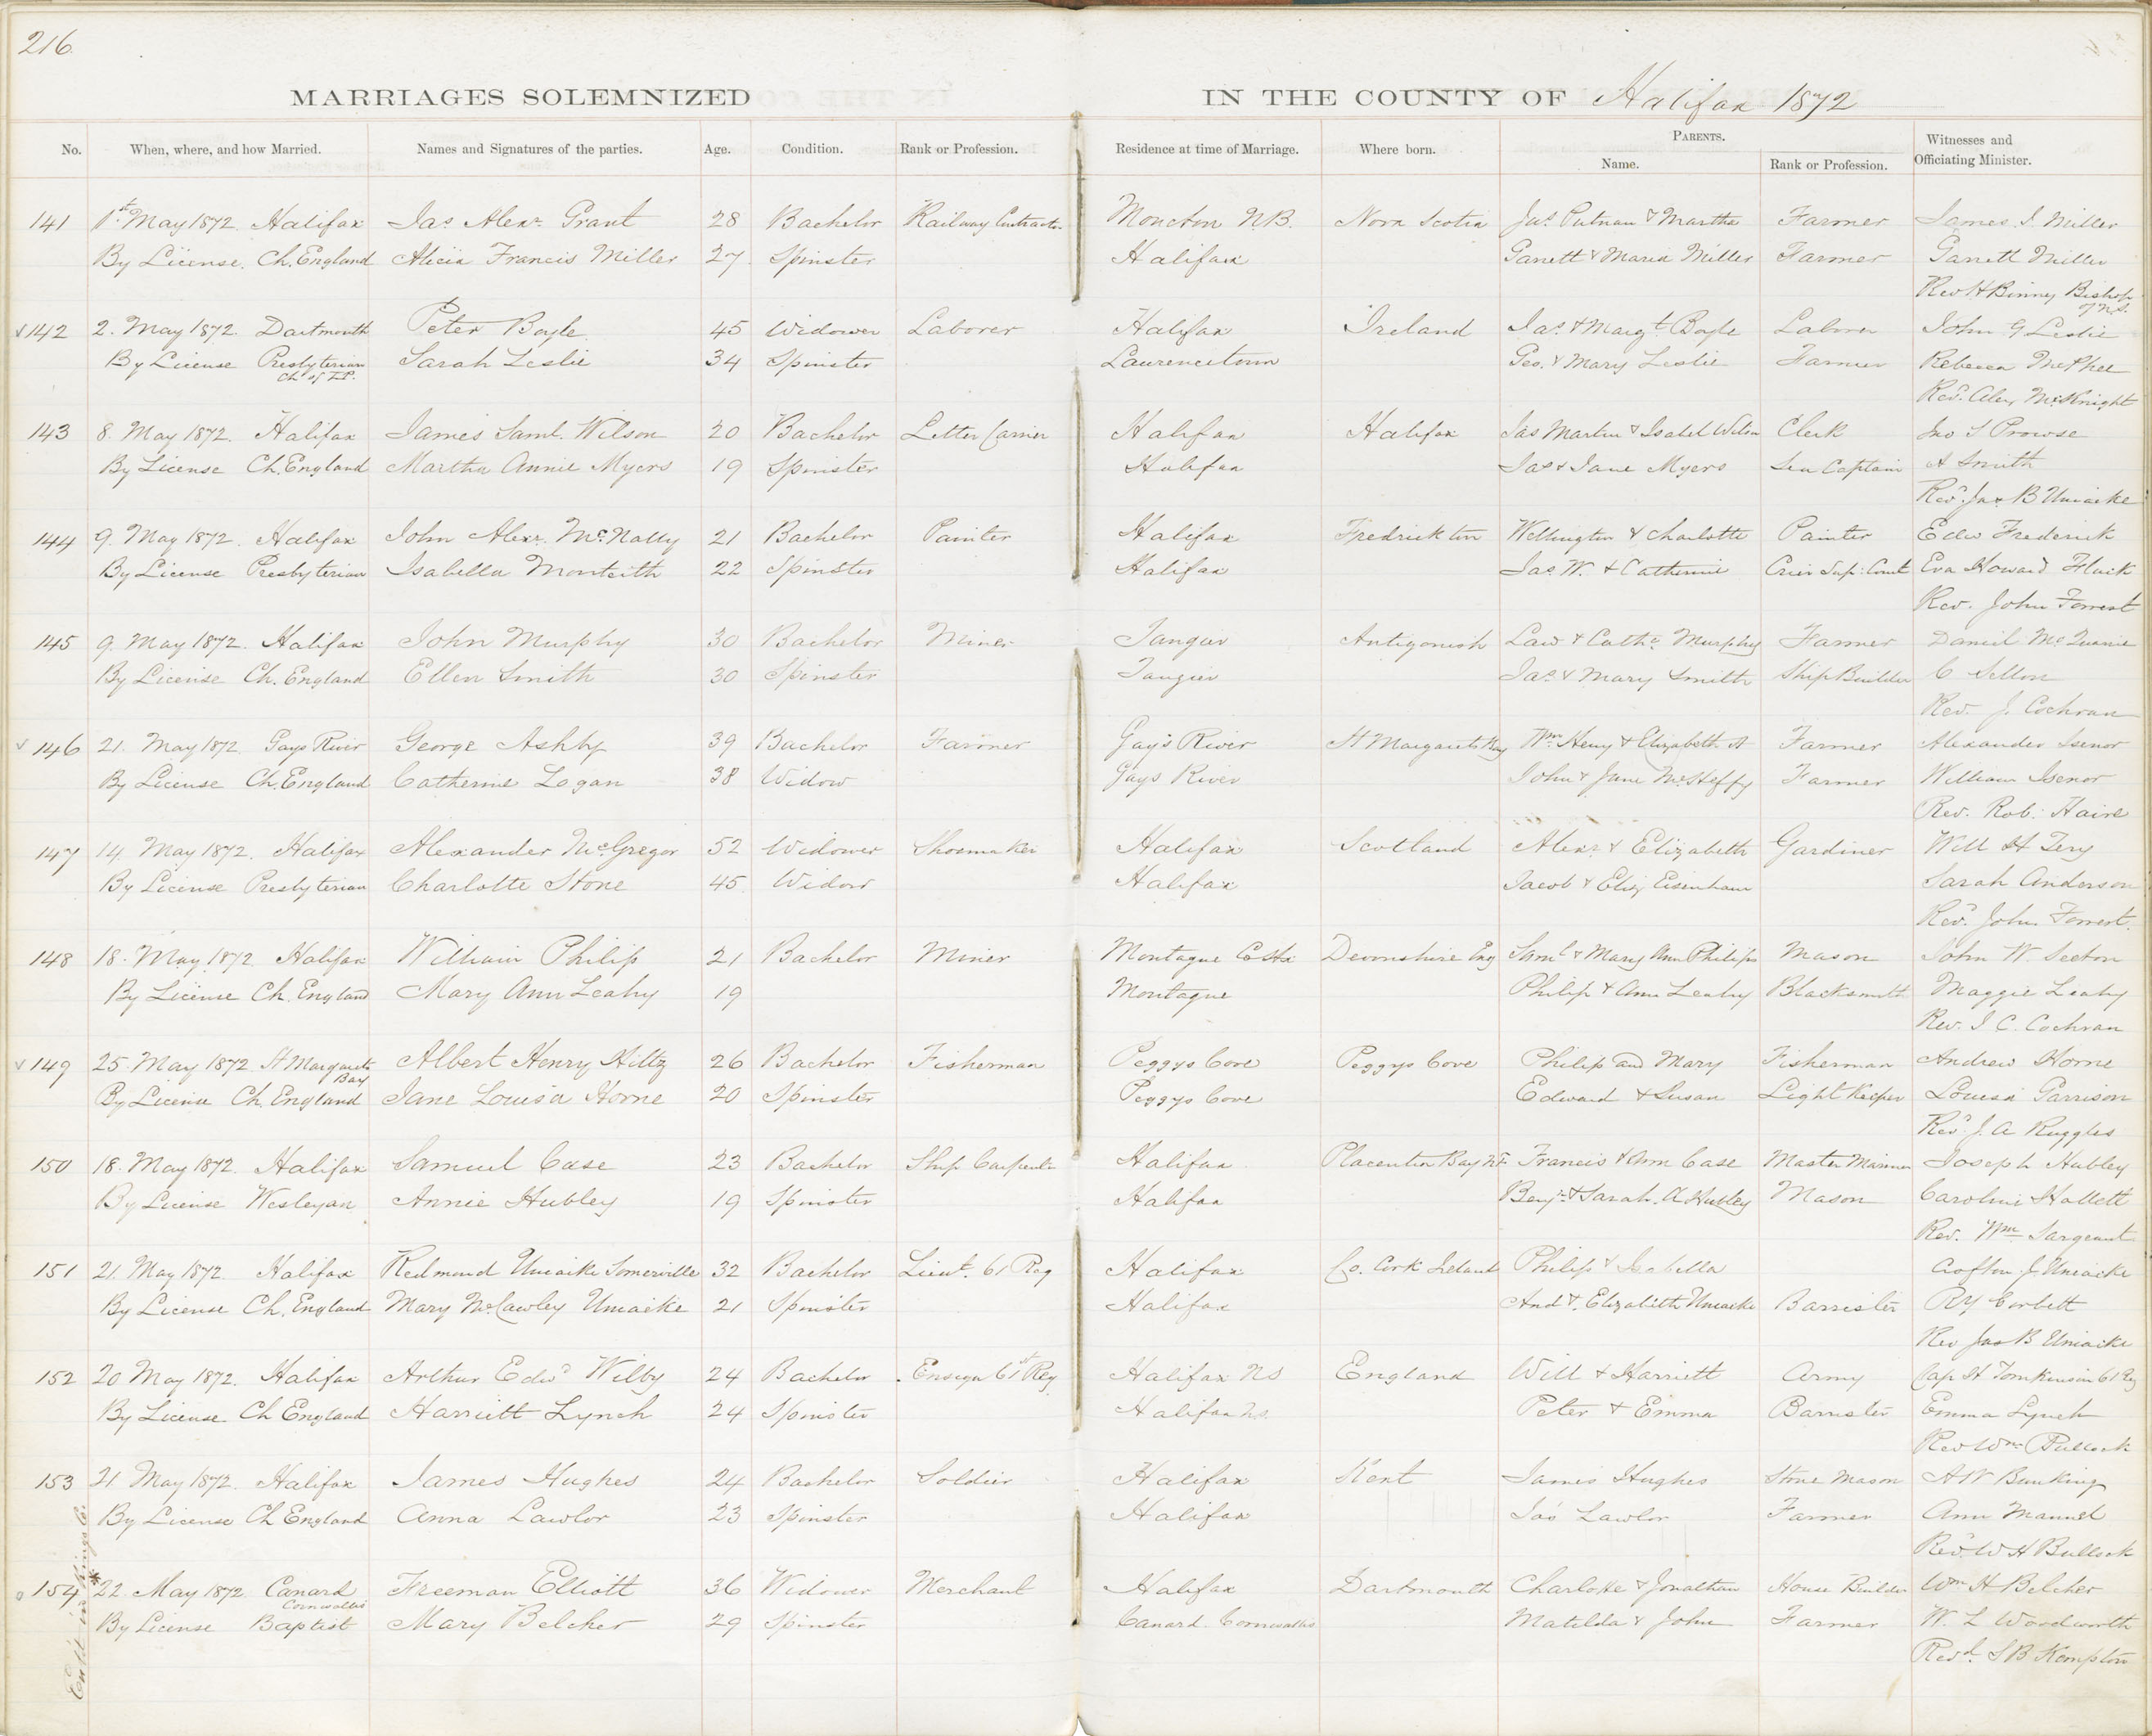 216
MARRIAGES SOLEMNIZED IN THE COUNTY OF Halifax 1872
No. When, where, and how Married. Names and Signatures of the parties. Age. Condition. Rank or Profession. Residence at time of Marriage. Where born. PARENTS. Name. Rank or Profession. Witnesses and Officiating Minister.
141 1st May 1872 Halifax Jas Alexr Grant 28 Bachelor Railway Contractor Moncton N.B. Nova Scotia Jas. Putnam & Martha Farmer James J. Miller
By License. Ch. England Alicia Francis Miller 27 Spinster Halifax Garrett & Maria Miller Farmer Garrett Miller
Rev H Binney Bishop of N.S.
142 2. May 1872. Dartmouth Peter Boyle 45 Widower Laborer Halifax Ireland Jas. & Margt Boyle Laborer John G Leslie
By License Presbyterian Ch of L.P. Sarah Leslie 34 Spinster Laurencetown Geo. & Mary Leslie Farmer Rebecca McPhee
Rev. Alex McKnight
143 8. May 1872. Halifax James Saml. Wilson 20 Bachelor Letter Carrier Halifax Halifax Jas Martin & Isabel Wilson Clerk Jno S Prowse
By License Ch. England Martha Annie Myers 19 Spinster Halifax Jas & Jane Myers Sea Captain A Smith
Revd. Jas B Uniacke
144 9. May 1872. Halifax John Alexr. McNally 21 Bachelor Painter Halifax Fredrickton Wellington & Charlotte Painter Edw Frederick
By License Presbyterian Isabella Monteith 22 Spinster Halifax Jas. W. & Catherine Crier Sup: Court Eva Howard Fluck
Rev. John Forrest
145 9. May 1872. Halifax John Murphy 30 Bachelor Miner Tangier Antigonish Law & Cathe Murphy Farmer Daniel
By License Ch. England Ellen Smith 30 Spinster Tangier Jas. & Mary Smith Ship Builder C Sellon
Rev. J. Cochran
146 21. May 1872 Gays River George Ashby 39 Bachelor Farmer Gay's River St Margarets Bay Wm Henry & Elizabeth A Farmer Alexander Isenor
By License Ch. England Catherine Logan 38 Widow Gays River John & Jane McHeffy Farmer William Isenor
Rev. Rob.
147 14 May 1872. Halifax Alexander McGregor 52 Widower Shoemaker Halifax Scotland Alexr. & Elizabeth Gardiner Will H
By License Presbyterian Charlotte Stone 45 Widow Halifax Jacob & Eliz Eisenhaur Sarah Anderson
Revd. John Forrest.
148 18. May 1872 Halifax William Philip 21 Bachelor Miner Montague Devonshire Eng Saml & Mary Ann Philips Mason John W. Seeton
By License Ch. England Mary Ann Leahy 19 Montague Philip & Ann Leahy Blacksmith Maggie Leahy
Rev. J C. Cochran
149 25. May 1872 St Margarets Bay Albert Henry Hiltz 26 Bachelor Fisherman Peggys Cove Peggys Cove Philip and Mary Fisherman Andrew Horne
By License Ch. England Jane Louisa Horne 20 Spinster Peggys Cove Edward & Susan Light Keeper Louisa Garrison
Revd. J. A Ruggles
150 18. May 1872. Halifax Samuel Case 23 Bachelor Ship Carpenter Halifax Placentia Bay N.F. Francis & Ann Case Master Mariner Joseph Hubley
By License Wesleyan Annie Hubley 19 Spinster Halifax Benj. & Sarah. A Hubley Mason Caroline Hallett
Rev. Wm Sargeant
151 21. May 1872. Halifax Redmond Uniacke Somerville 32 Bachelor Lieut. 61 Reg Halifax Co. Cork Ireland Philip & Isabella Crofton J. Uniacke
By License Ch. England Mary McCawley Uniacke 21 Spinster Halifax And & Elizabeth Uniacke Barrister R Y Corbett
Rev Jas B Uniacke
152 20 May 1872. Halifax Arthur Edwd Wilby 24 Bachelor Ensign 61st Reg Halifax NS England Will & Harriett Army Cap H Tomkinson 61 Reg
By License Ch England Harriett Lynch 24 Spinster Halifax NS. Peter & Emma Barrister Emma Lynch
Rev Wm Bullock
153 21. May 1872. Halifax James Hughes 24 Bachelor Soldier Halifax Kent James Hughes Stone Mason A W
By License Ch England Anna Lawlor 23 Spinster Halifax Jas Lawlor Farmer Ann Mannel
Revd. W H Bullock
154 * 22. May 1872 Canard Cornwallis Freeman Elliott 36 Widower Merchant Halifax Dartmouth Charlotte & Jonathan House Builder Wm H Belcher
By License Baptist Mary Belcher 29 Spinster Canard. Cornwallis Matilda & John Farmer W. L Woodworth
Revd. S B Kempton
Ent'd in Kings Co.